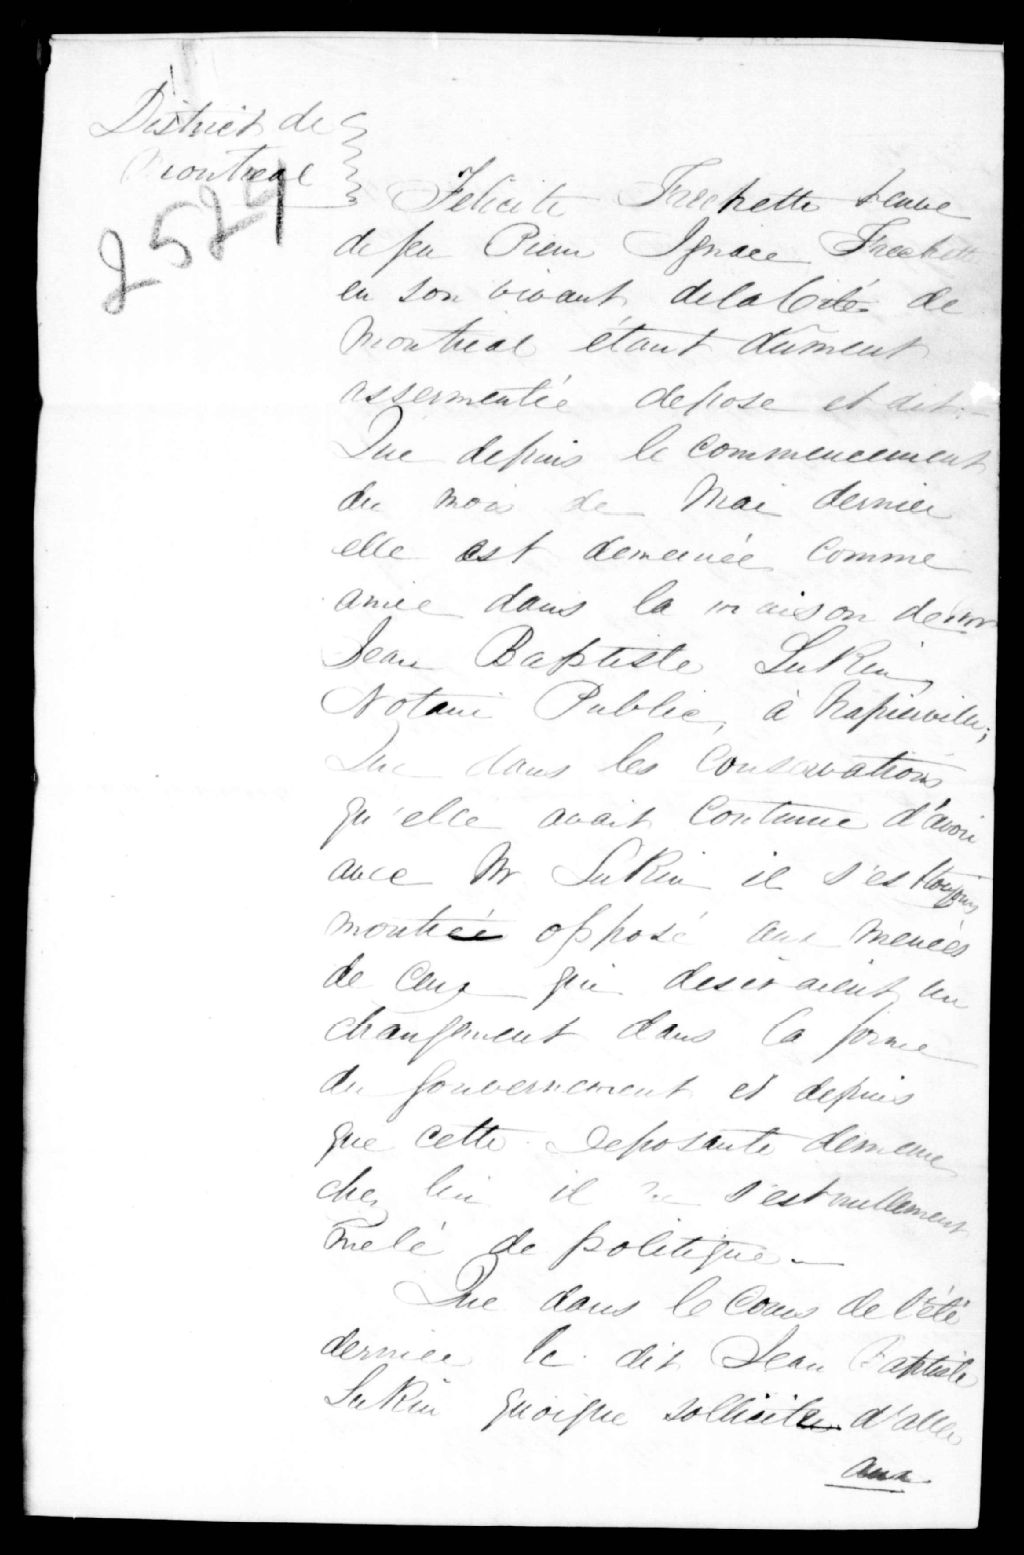 District de
Montreal
2529
Félicité Frechette veuve
de feu Pierre Ignace Frechette
en son vivant de la Cité de
Montreal étant dûment
assermentée depose et dit:—
Que depuis le commencement
du mois de Mai dernier
elle est demeurée comme
amie dans la maison de
Jean Baptiste Lukin,
Notaire Public, à Napierville;
Que dans les Conservations
qu'elle avait Coutume d'avoir
avec Mr Lukin il s'est toujours
montré opposé aux menées
de ceux qui desiraient un
changement dans la forme
du Gouvernement et depuis
que cette Deposante demeure
chez lui il ne s'est nullement
mêlé de politique.—
Que dans le Cours de l'été
dernier le dit Jean Baptiste
Lukin quoique sollicité d'aller
aux